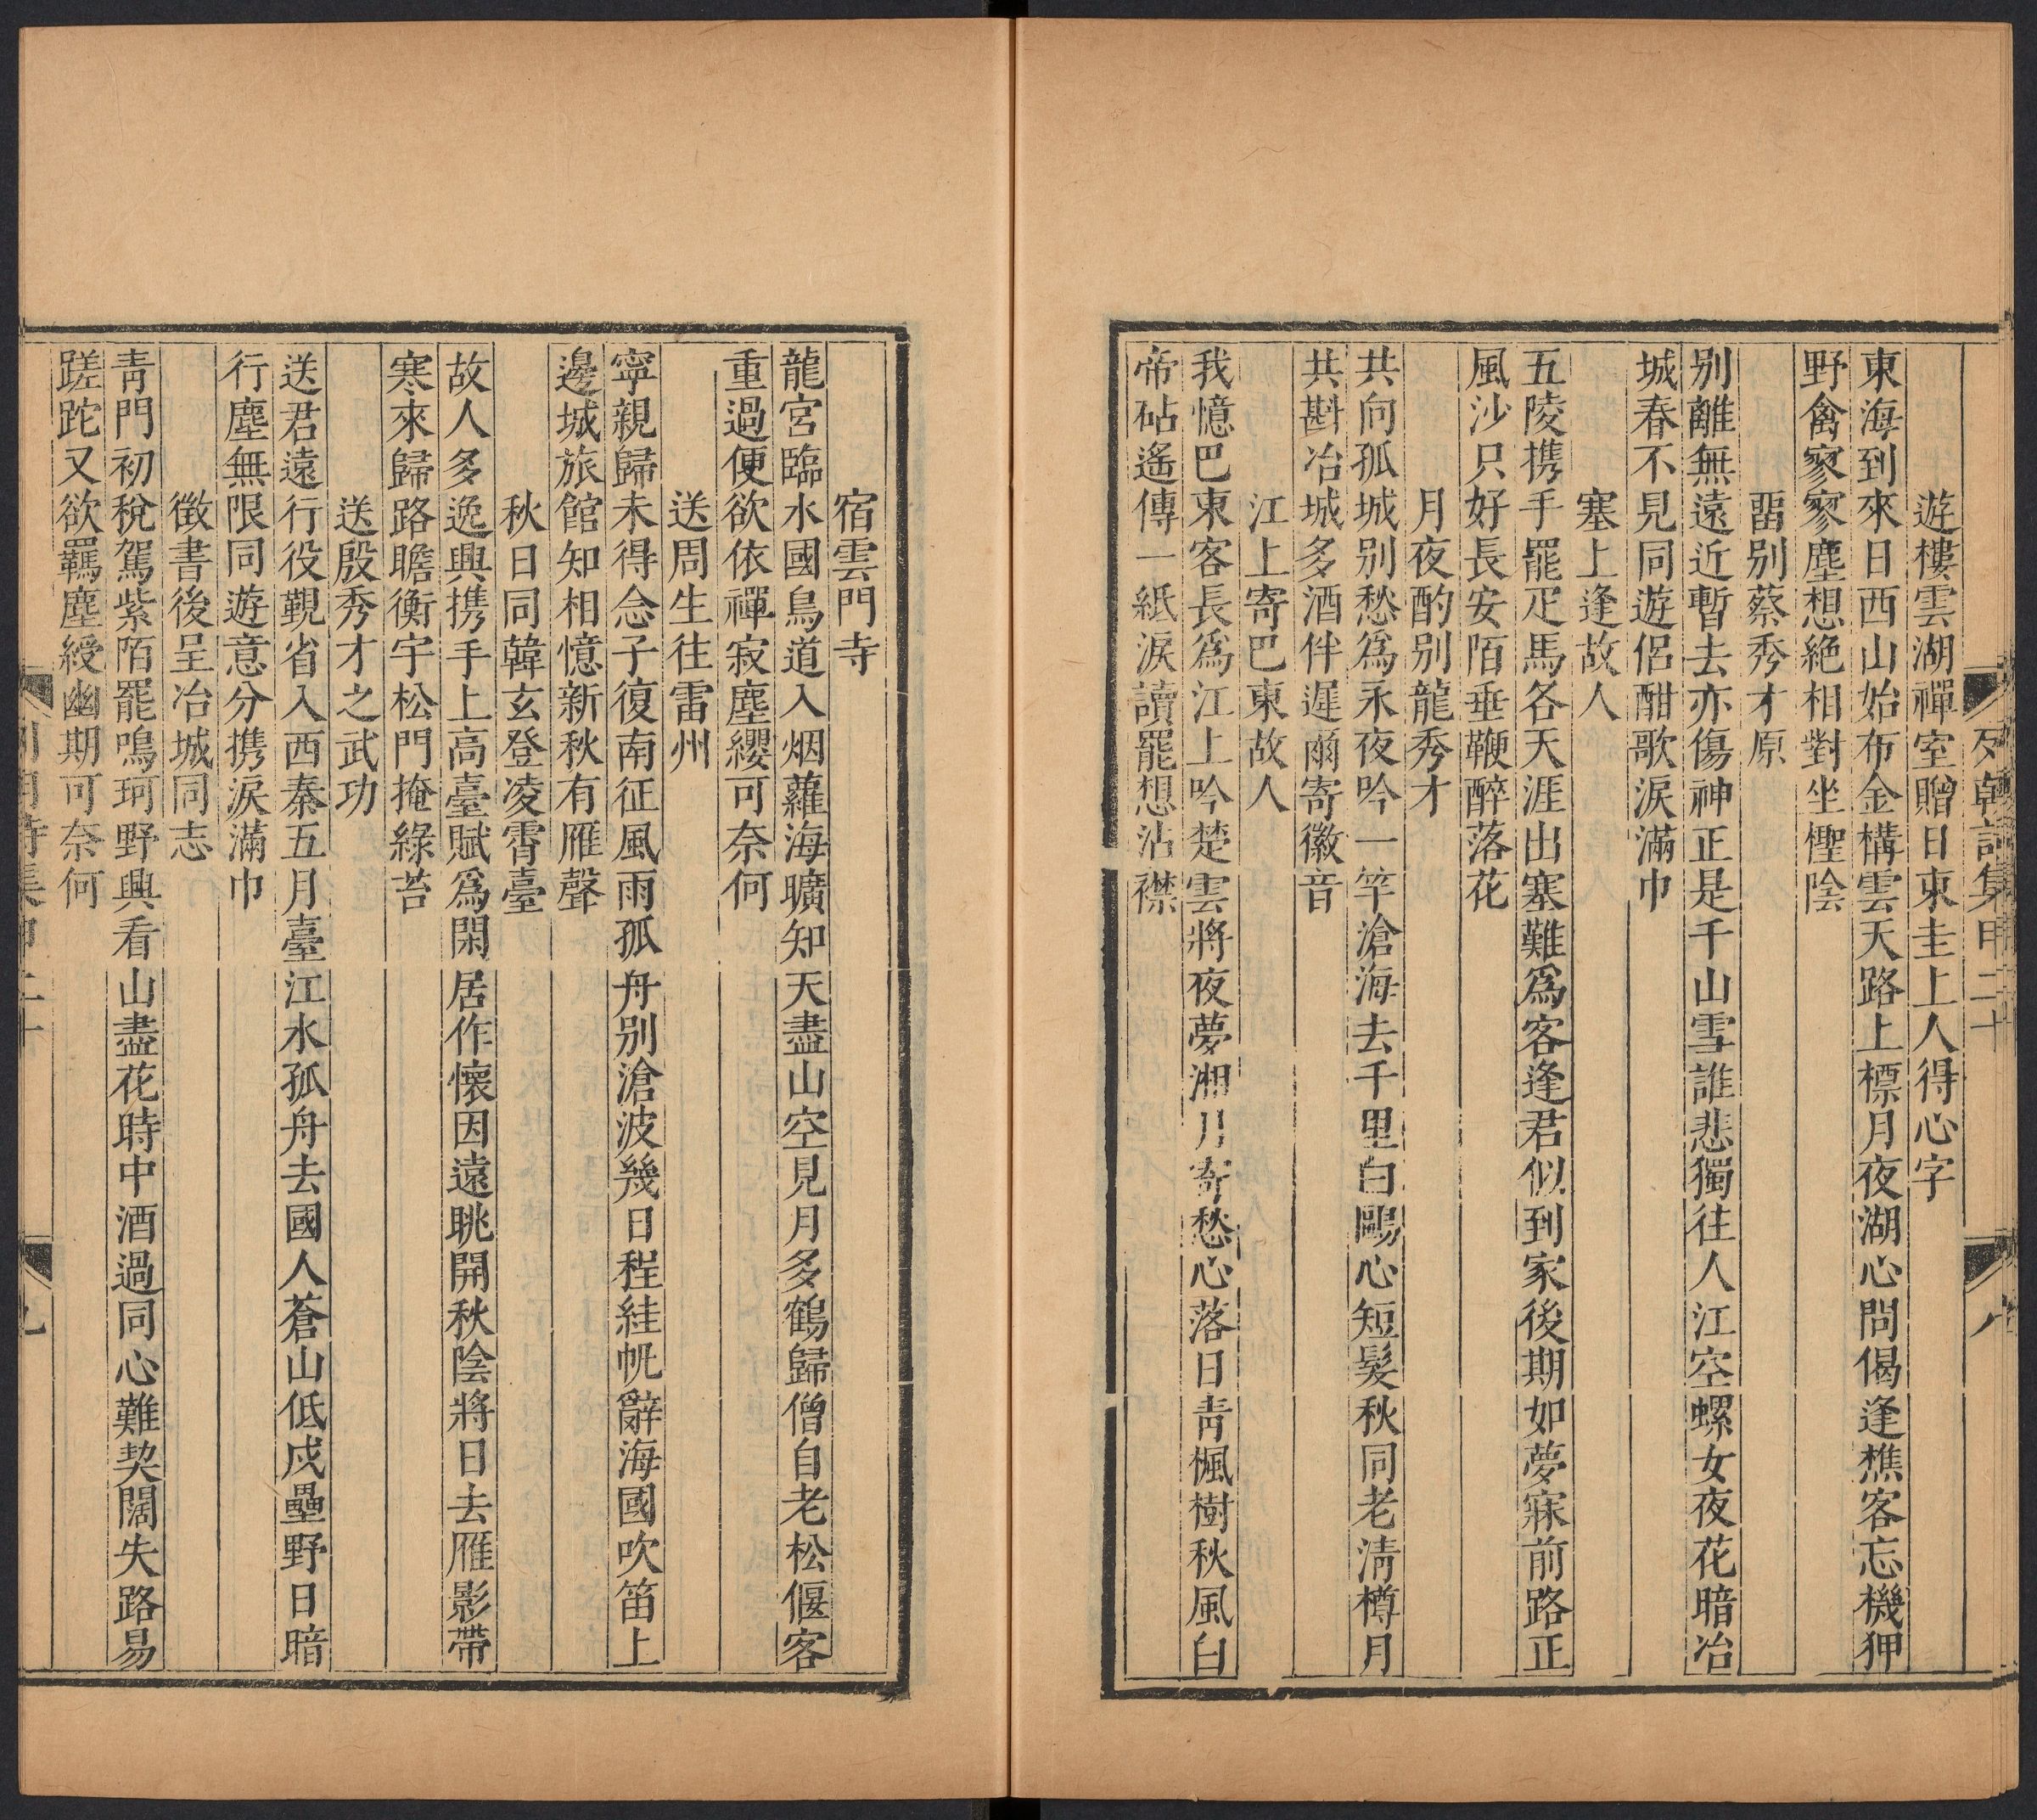 列朝詩集甲二十
八
遊樓雲湖禪室贈日東圭上人得心字
東海到來日西山始布金構雲天路上標月夜湖心問偈逢樵客忘機狎
野禽寥寥塵想絶相對坐檉陰
畱别蔡秀才原
别離無遠近暫去亦傷神正是千山雪誰悲獨往人江空螺女夜花暗冶
城春不見同遊侶酣歌淚滿巾
塞上逢故人
五陵携手罷疋馬各天涯出塞難爲客逢君似到家後期如夢寐前路正
風沙只好長安陌垂鞭醉落花
月夜酌别龍秀才
共向孤城别愁爲永夜吟一竿滄海去千里白鷗心短髮秋同老淸樽月
共斟冶城多酒伴遲爾寄徽音
江上寄巴東故人
我憶巴東客長爲江上吟楚雲將夜夢湘月寄愁心落日靑楓樹秋風白
帝砧遙傳一紙淚讀罷想沾襟
宿雲門寺
龍宮臨水國鳥道入烟蘿海曠知天盡山空見月多鶴歸僧自老松偃客
重過便欲依禪寂塵纓可奈何
送周生往雷州
寧親歸未得念子復南征風雨孤舟别滄波幾日程絓帆辭海國吹笛上
邊城旅館知相憶新秋有雁聲
秋日同韓玄登凌霄臺
故人多逸興携手上高臺賦爲閑居作懷因遠眺開秋陰將日去雁影帶
寒來歸路瞻衡宇松門掩綠苔
送殷秀才之武功
送君遠行役覲省入西秦五月臺江水孤舟去國人蒼山低戍壘野日暗
行塵無限同遊意分携淚滿巾
徵書後呈冶城同志
靑門初稅駕紫陌罷鳴珂野興看山盡花時中酒過同心難契闊失路易
蹉跎又欲羈塵綬幽期可奈何